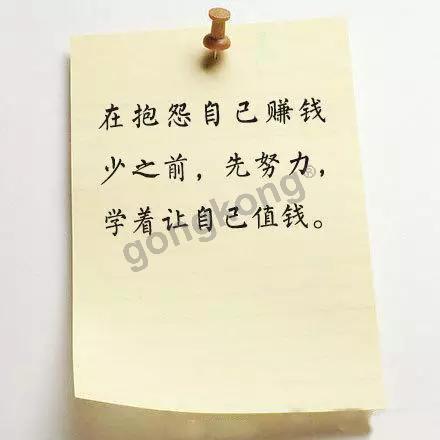 在抱怨自己赚钱
少之前，先努力，
学着让自己值钱。
gongkong®